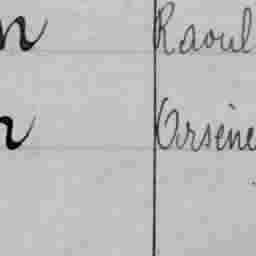 n Raoul
n Arsène